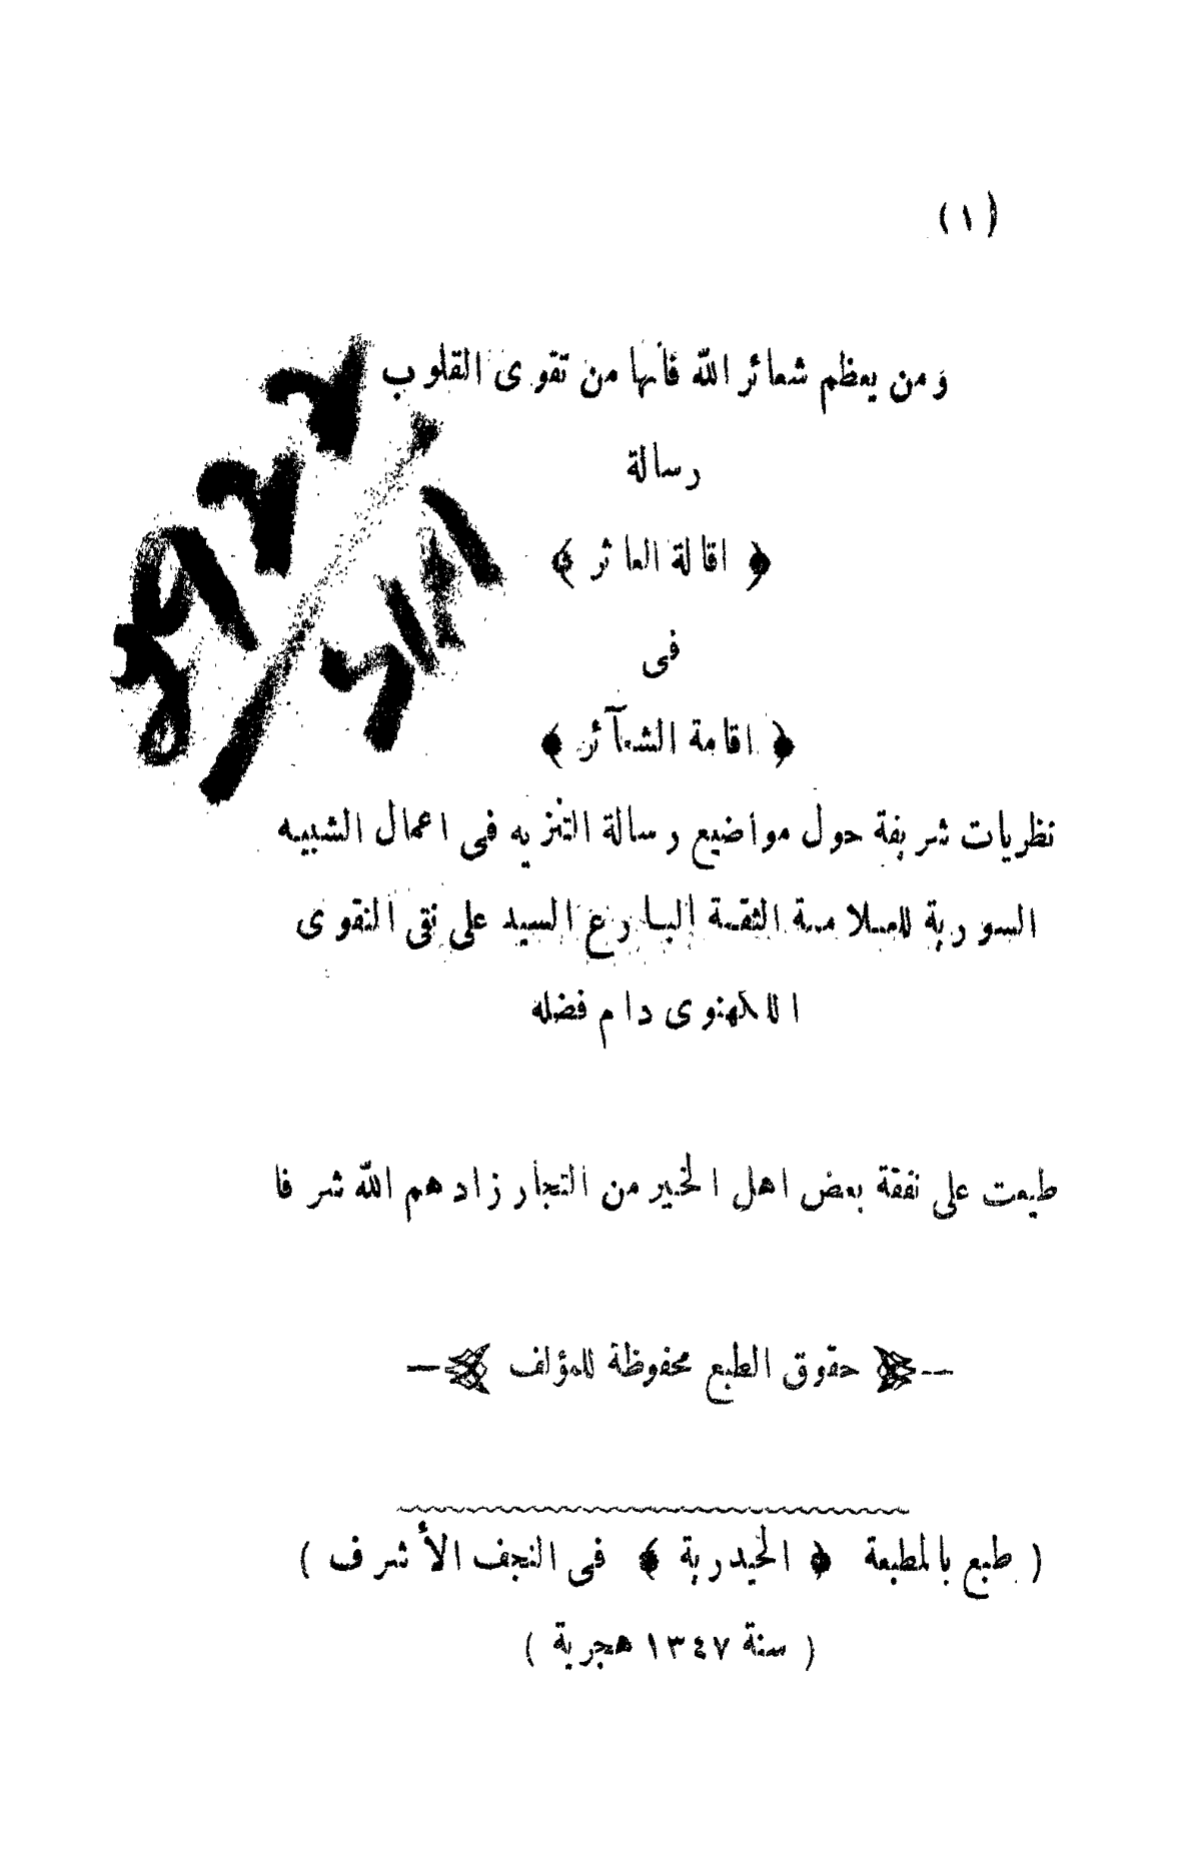 (١)
ومن يعظم شعائر الله فأنها من تقوى القلوب
رسالة
﴿ اقالة العاثر ﴾
فى
﴿ اقامة الشعآئر ﴾
نظريات شريفة حول مواضيع رسالة التنزيه فى اعمال الشبيه
السورية للعلامة الثقة البارع السيد على نقى النقوى
اللكهنوى دام فضله
طبعت على نفقة بعض اهل الخير من التجار زادهم الله شرفا
حقوق الطبع محفوظة للمؤلف
( طبع بالمطبعة ﴿ الحيدرية ﴾ فى النجف الأشرف )
( سنة ١٣٤٧ هجرية )